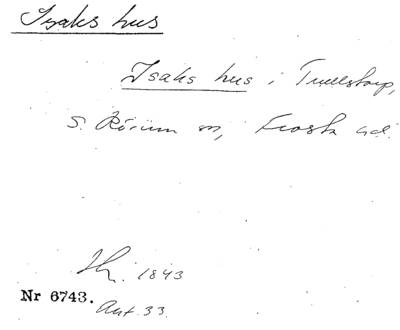 Isaks hus
Isaks hus i Trulstorp,
S. Rörum sn, Frosta hd.
1843
Nr 6743. Ant. 33.